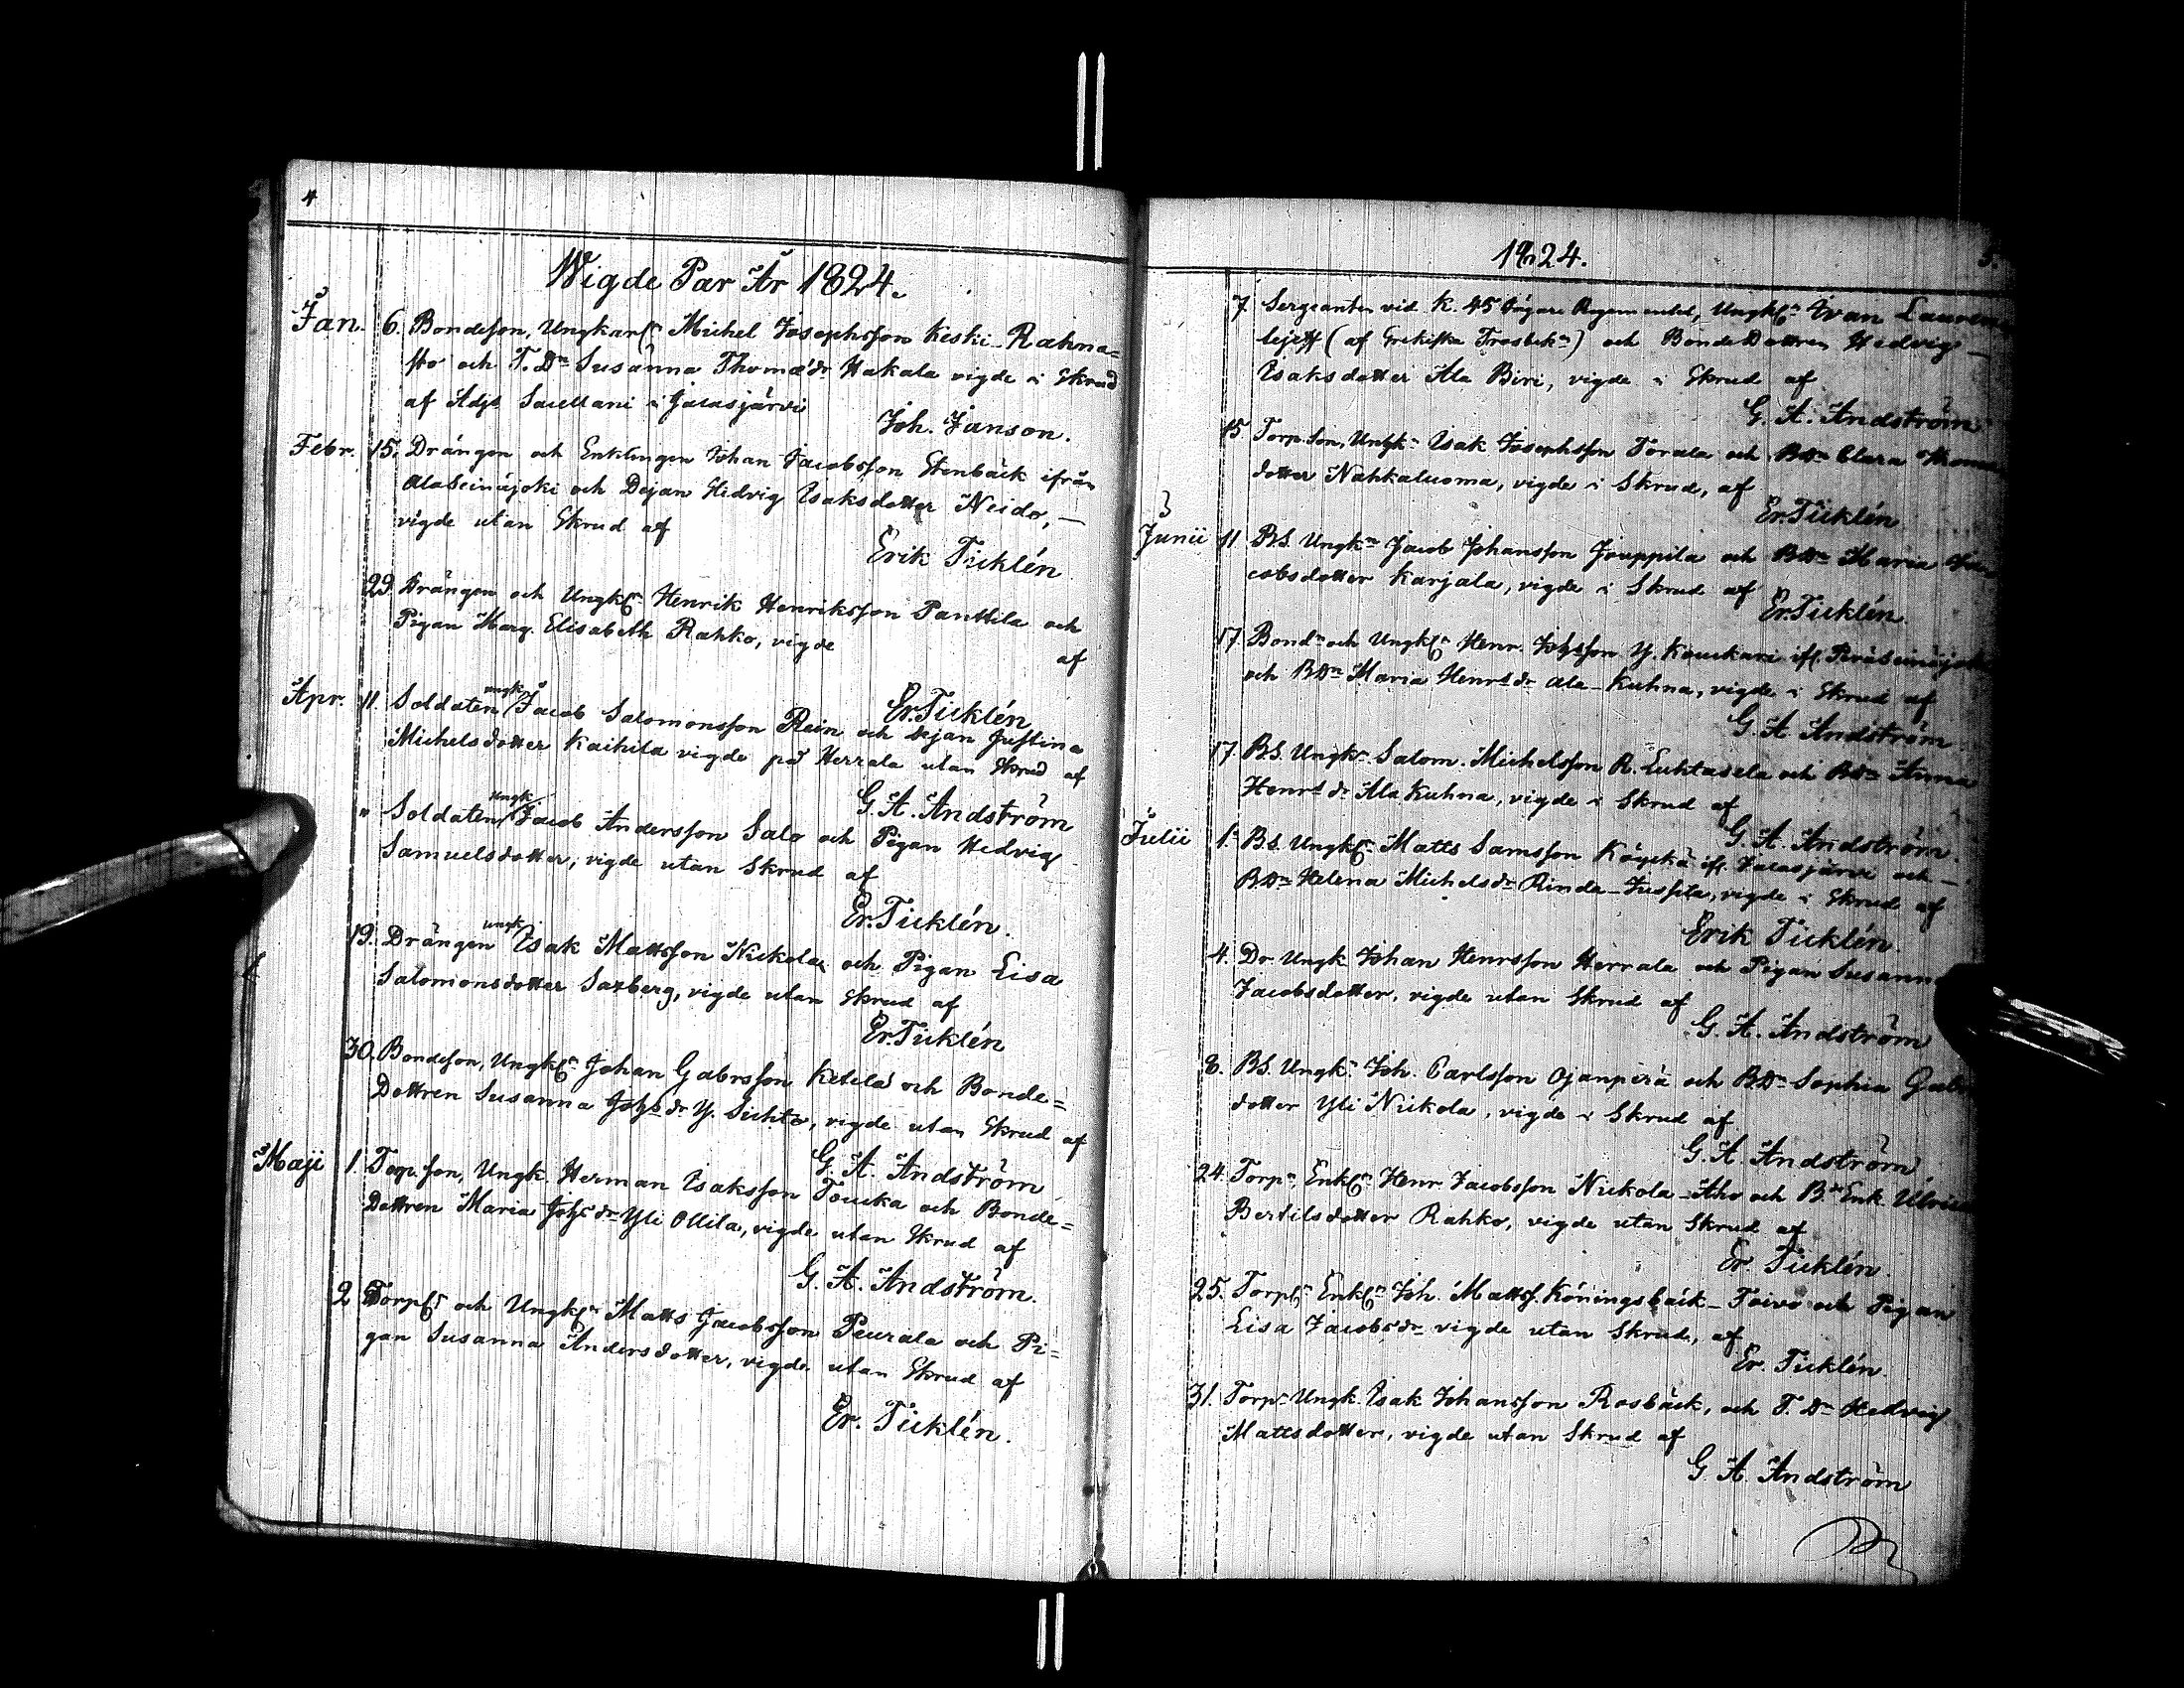 4
Wigde Par År 1824.
Jan. 6. Bondeson, Ungkarln Michel Josephsson Keski-Rahna=
sto och T. Dn Susanna Thomædr Hakala vigde i Skrud
af Adjt Snellani i Jalasjärvi
Joh. Janson.
Febr. 15. Drängen och Enklingen Johan Jacobsson Stenbäck ifrån
AlaSeinäjoki och Pejan Hedvig Isaksdotter Neido, —
vigde utan Skrud af
Erik Ticklén
29. Drängen och Ungkn Henrik Henriksson Panttila och
Pigan Marg. Elisabeth Rahko, vigde
af
Er. Ticklén
Apr. 11. Soldaten ungk. Jacob Salomonsson Rein och Pejan Justina
Michelsdotter Kaihila vigde på Herrala utan Skrud af
G. A. Andström
" Soldaten Ungk. Jacob Andersson Salo och Pigan Hedvig
Samuelsdotter, vigde utan Skrud af
Er. Ticklén.
19. Drängen ungk. Isak Mattsson Nickola och Pigan Lisa
Salomonsdotter Saxberg, vigde utan Skrud af
Er. Ticklén
30. Bondeson, Ungkn Johan Gabrsson Ketela och Bonde=
Dottren Susanna Johsdr Y. Sichto, vigde utan Skrud af
G. A. Andström
Maji 1. Torp. son, Ungk. Herman Isaksson Toucka och Bonde=
Dottren Maria Johsdr Yli Ollila, vigde utan Skrud af
G. A. Andström.
2 Torpn och Ungkn Matts Jacobsson Peurala och Pi=
gan Susanna Andersdotter, vigde utan Skrud af
Er. Ticklén.
1824.
5.
7. Sergeanten vid K. 45 Jägare Regementet, Ungkn Ivan
(af Grekiska Trosbekn) och BondeDottren Hedvig —
Isaksdotter Ala Biri, vigde i Skrud af
G. A. Andström
15 Torp. Son, Ungkn Isak Josephsson Torala och BDn Clara
dotter Nahkaluoma, vigde i Skrud, af
Er. Ticklén
Junii 11 BS. Ungkn Jacob Johansson Jouppila och BDn Maria
cobsdotter Karjala, vigde i Skrud af
Er. Ticklén.
17. Bondn och Ungkn Henr. Johsson Y. Kouckari ifr. Peräseinäjoki
och BDn Maria Henrs dr Ala-Kuhna, vigde i Skrud af
G. A Andström
17. BS. Ungkn Salom. Michelsson R. Luhtasela och BDn Anna
Henrs dr Ala Kuhna, vigde i Skrud af
G. A. Andström.
Julii 1. BS. Ungkn Matts Samsson Köyckä ifr. Jalasjärvi och —
BDn Helena Michelsdr Rinda-Jussila, vigde i Skrud af
Erik Ticklén
4. Dr. Ungk Johan Henrsson Herrala och Pigan Susanna
Jacobsdotter, vigde utan Skrud af
G. A. Andström
8. BS. Ungkn Joh. Carlsson Ojanperä och BDn Sophia
dotter Yli Nickola, vigde i Skrud af
G. A. Andström
24. Torpn, Enkn Henr. Jacobsson Nickola-Aho och Bn Enk. Ulrica
Bertilsdotter Rahko, vigde utan Skrud af
Er. Ticklén.
25. Torpn Enkn Joh. Mattss. Köningsbäck-Toivo och Pigan
Lisa Jacobsdr vigde utan Skrud, af
Er. Ticklén.
31. Torpn Ungk. Isak Johansson Rosbäck, och T. Dn Hedvig
Mattsdotter, vigde utan Skrud af
G. A. Andström